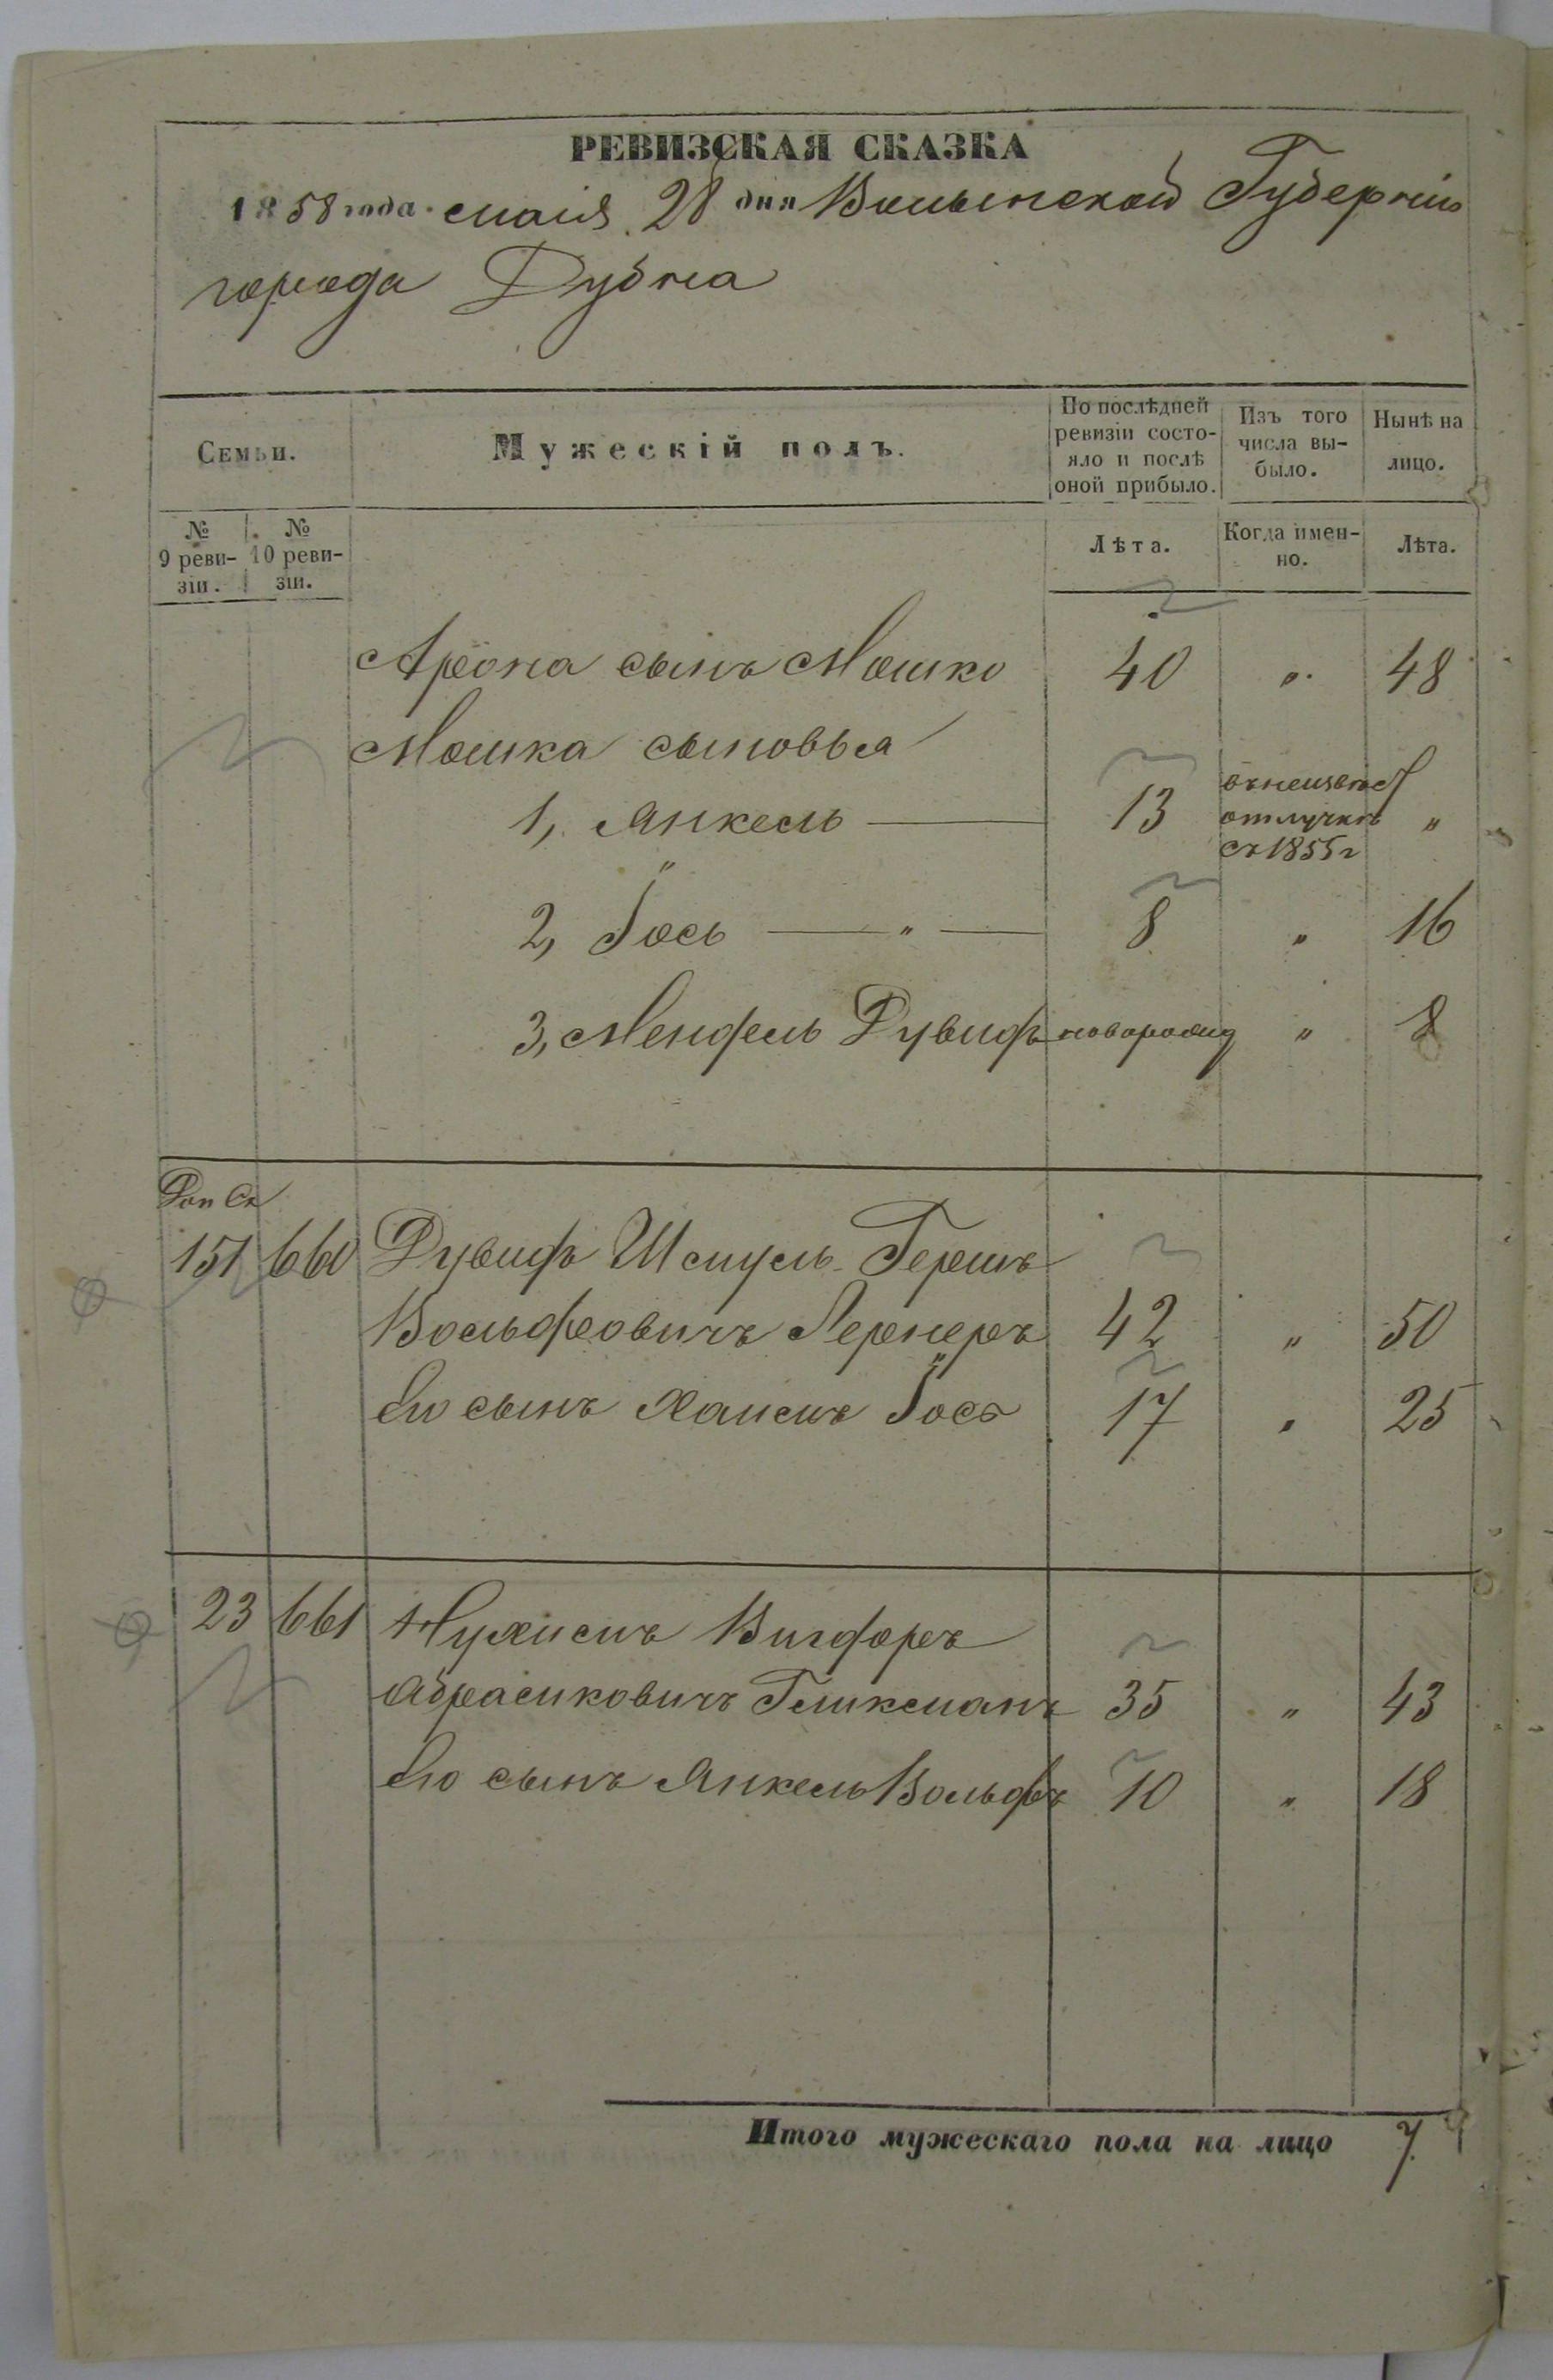 РЕВИЗСКАЯ СКАЗКА
1858 года маія 28 дня Волынской Губерніи
города Дубна
Семьи.
Мужескій полъ.
По послѣдней ревизіи состо-
яло и послѣ
оной прибыло.
Изъ того
числа вы-
было.
Нынѣ на
лицо.
№
9 реви-
зіи.
№
10 реви-
зіи.
Лѣта.
Когда имен-
но.
Лѣта.
Арона сынъ Мошко 40 „ 48
Мошка сыновья
1, Янкель — 13 въ неизвѣст отлучкѣ съ 1855 г „
2, Іось — „ — 8 „ 16
3, Мендель Дувидъ новорожд „ 8
Доп Ск
151 660 Дувидъ Шмуль Гершъ
Вольфовичъ Лернеръ 42 „ 50
Его сынъ Хаимъ Іось 17 „ 25
23 661 Нухимъ Вигдоръ
Абрамковичъ Гликманъ 35 „ 43
Его сынъ Янкель Вольфъ 10 „ 18
Итого мужескаго пола на лицо 7